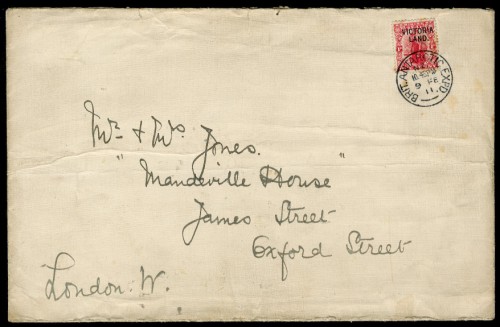 VICTORIA
LAND.
BRIT. ANTARCTIC EXPD.
9 FE
11
Mr & Mrs Jones.
"Mandeville House"
James Street
Oxford Street
London. W.